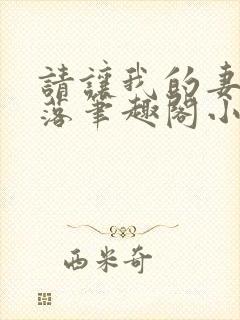 請讓我的妻
落筆趣閣小
西米奇